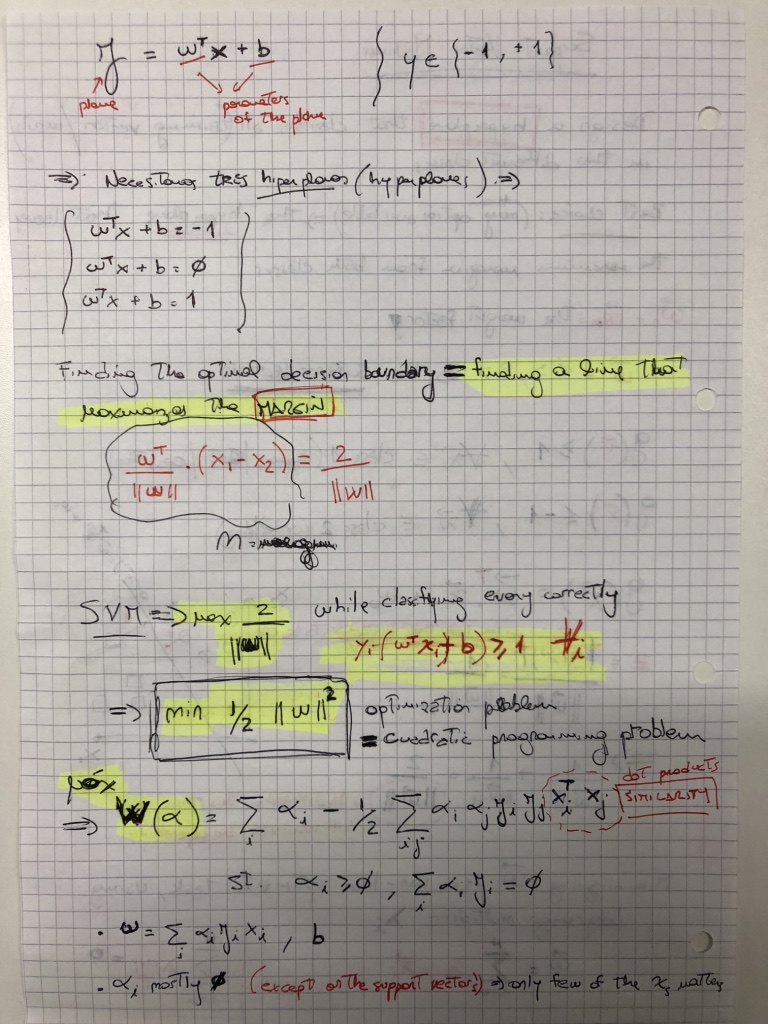 y = wᵀx + b } y ∈ {-1, +1}
plane parameters
of the plane
⇒ Necesitamos tres hiperplanos (hyperplanes) ⇒
wᵀx + b = -1
wᵀx + b = ∅
wᵀx + b = 1
Finding the optimal decision boundary = finding a line that
maximizes the MARGIN
wᵀ/||w|| · (x₁ - x₂) = 2/||w||
m =
SVM ⇒ max 2/||w|| while classifying every correctly
yᵢ (wᵀxᵢ + b) ≥ 1 ∀ᵢ
⇒ min 1/2 ||w||² optimization problem
= cuadratic programming problem
máx dot products
⇒ W(α) = Σᵢ αᵢ - 1/2 Σᵢⱼ αᵢ αⱼ yᵢ yⱼ xᵢᵀ xⱼ SIMILARITY
st. αᵢ ≥ ∅, Σᵢ αᵢ yᵢ = ∅
· w = Σᵢ αᵢ yᵢ xᵢ , b
· αᵢ mostly ∅ (except on the support vectors) ⇒ only few of the xₛ matter